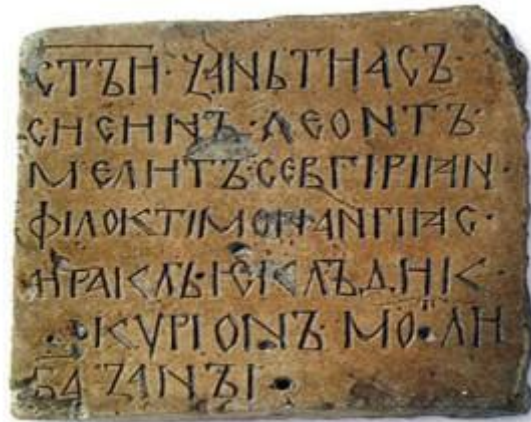 СТЪИ · ЗАНЬТИАСЪ ·
СИСИНЪ · ЛЕОНТЪ ·
МЕЛИТЪ · СЕВГІРІꙖН
ФІЛОКТІМОН АНГІꙖС ·
ИРАКЛЬ · ІСІКЛЪД · ИІС ·
КУРІОНЪ МО ЛИ
БА ЗАНЪІ ·